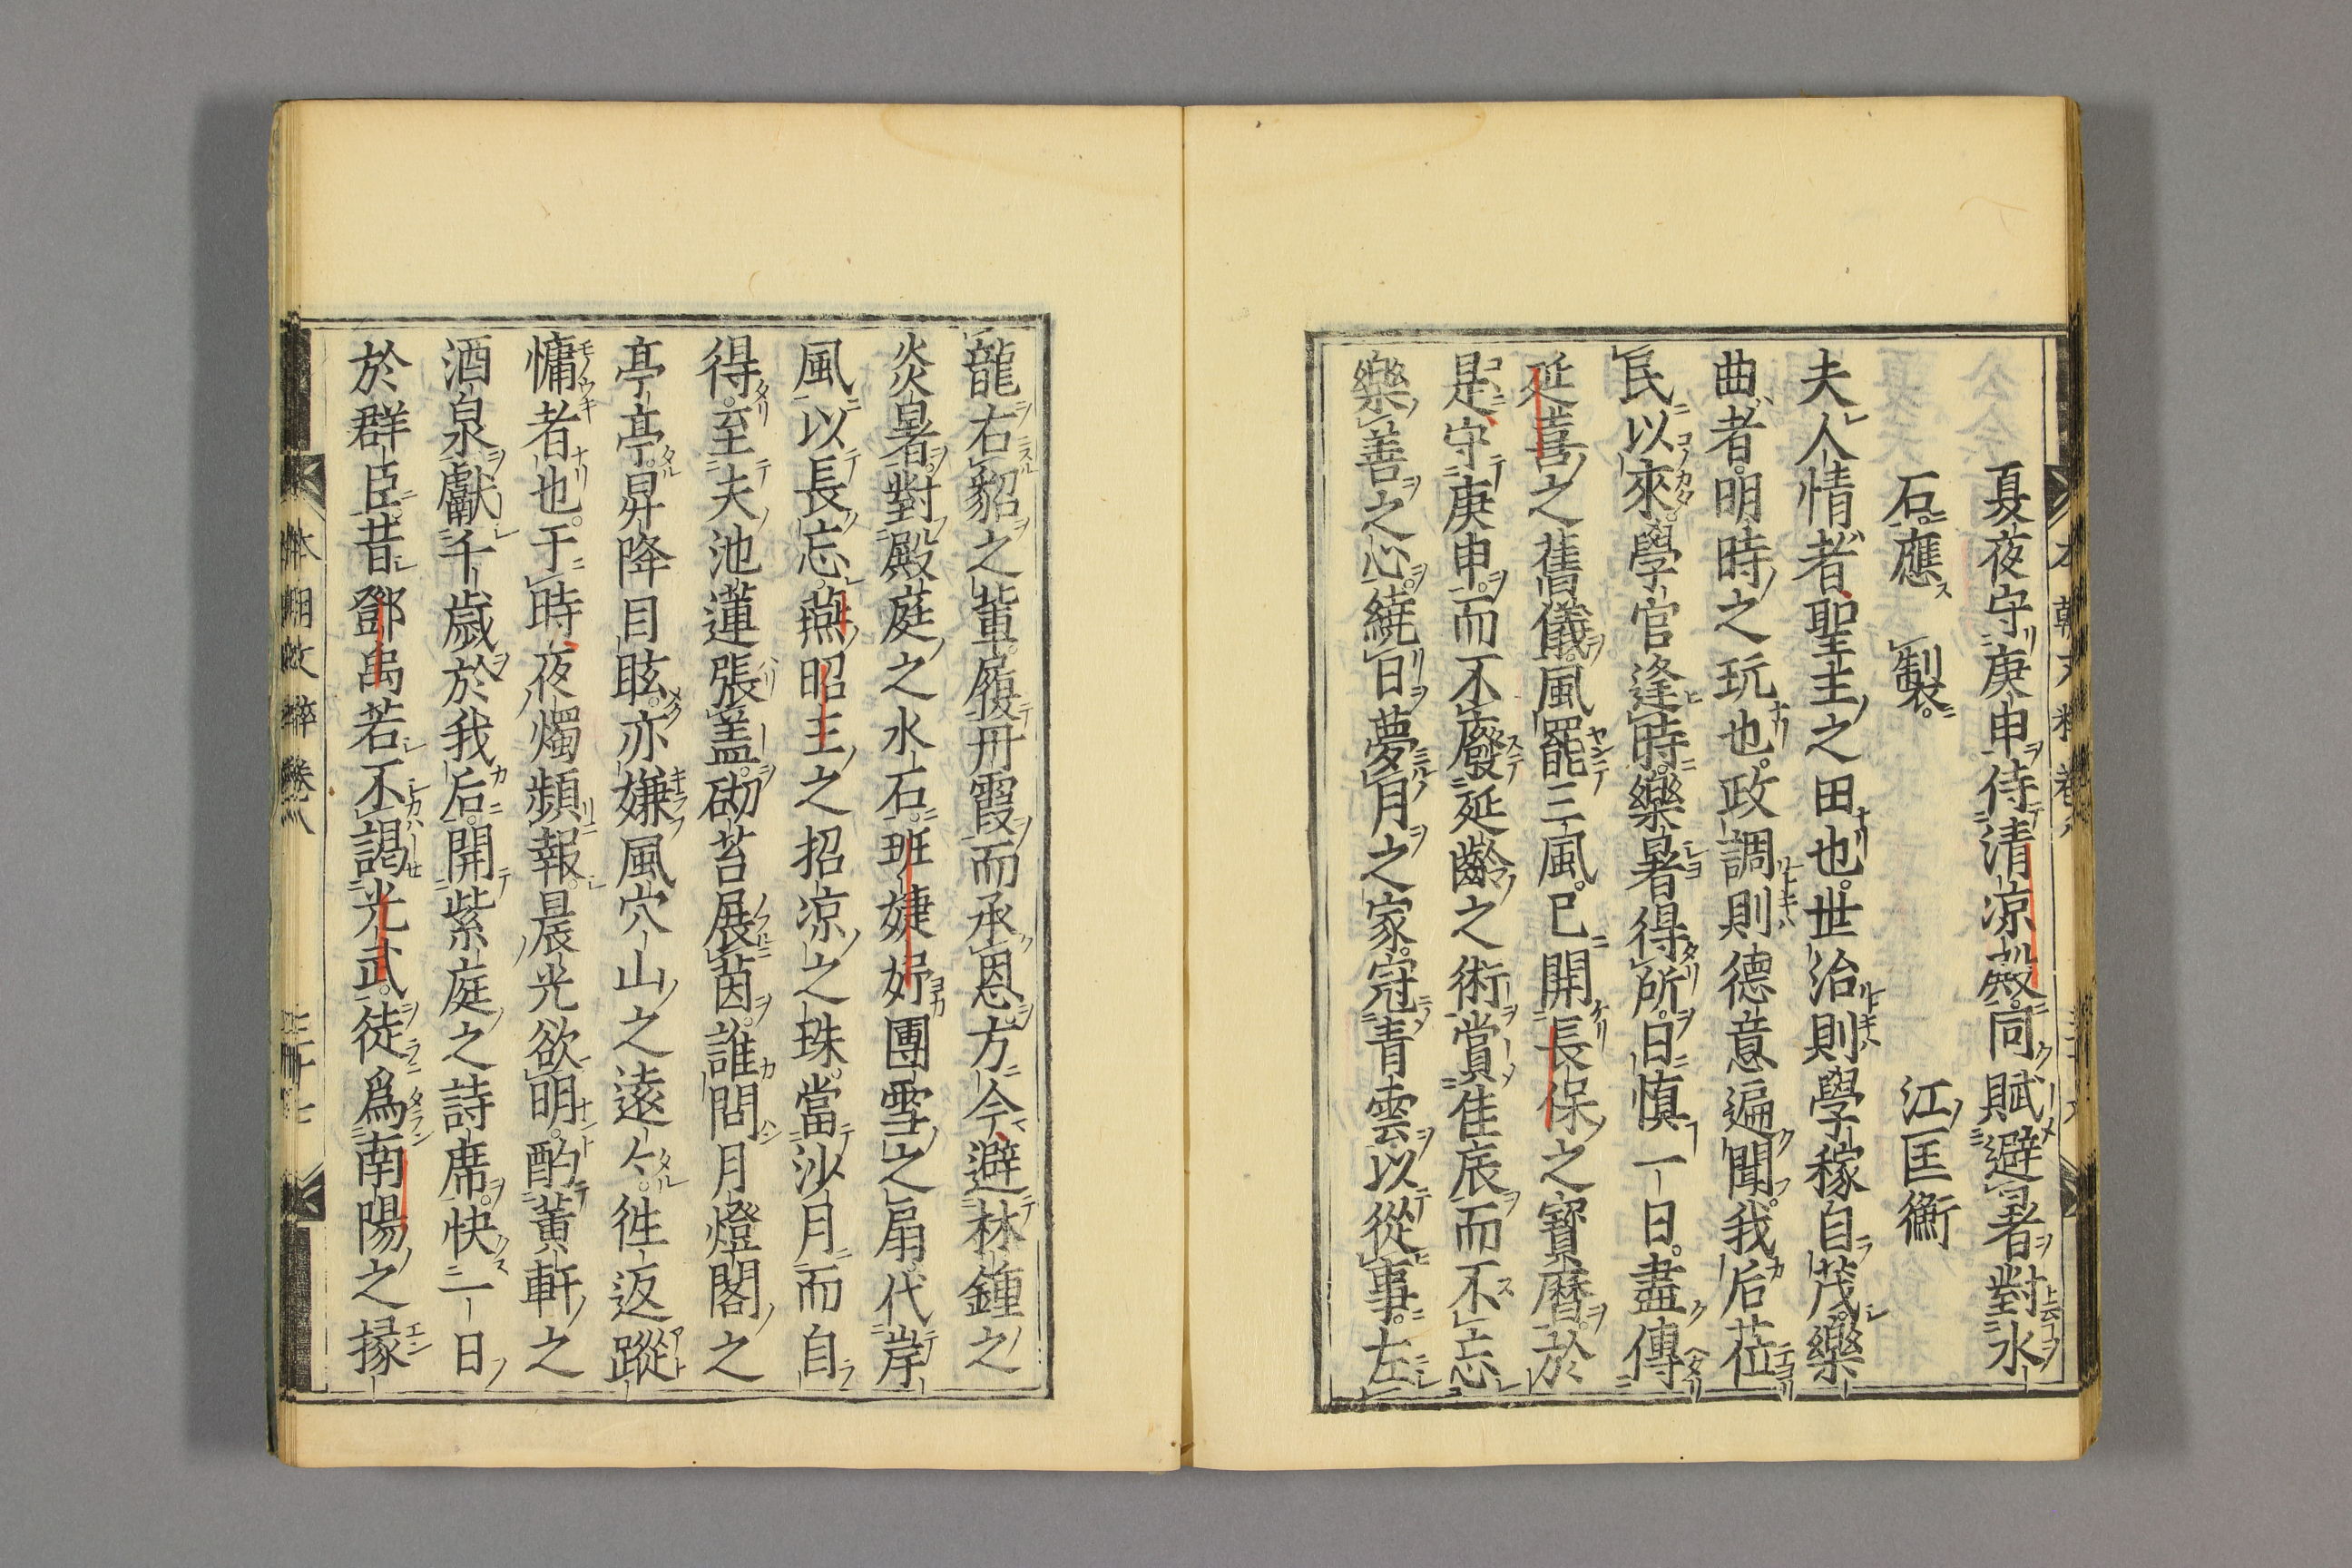 夏夜守庚申侍清凉殿同賦避暑對水
石應製 江匡衡
夫人情者聖主之田也世治則學稼自茂樂
曲者明時之玩也政調則德意遍聞我后莅
民以來學官逢時樂署得所日慎一日盡傳
延喜之舊儀風罷三風已開長保之寳曆於
是守庚申而不廢延齡之術賞佳辰而不忘
樂善之心繞日夢月之家冠青雲以從事左
龍右貂之輩履丹霞而承恩方今避林鍾之
炎暑對殿庭之水石班婕妤團雪之扇代岸
風以長忘燕昭王之招凉之珠當沙月而自
得至夫池蓮張盖砌苔展茵誰問月燈閣之
亭亭昇降目眩亦嫌風穴山之遠々徃返蹤
慵者也于時夜燭頻報晨光欲明酌黄軒之
酒泉獻千歳於我后開紫庭之詩席快一日
於群臣昔鄧禹若不謁光武徒爲南陽之掾
本朝文粹卷八